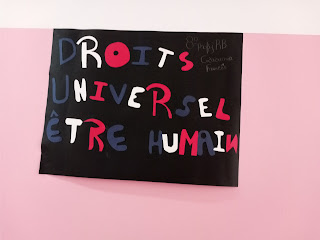 DROITS
UNIVERSEL
ÊTRE HUMAIN